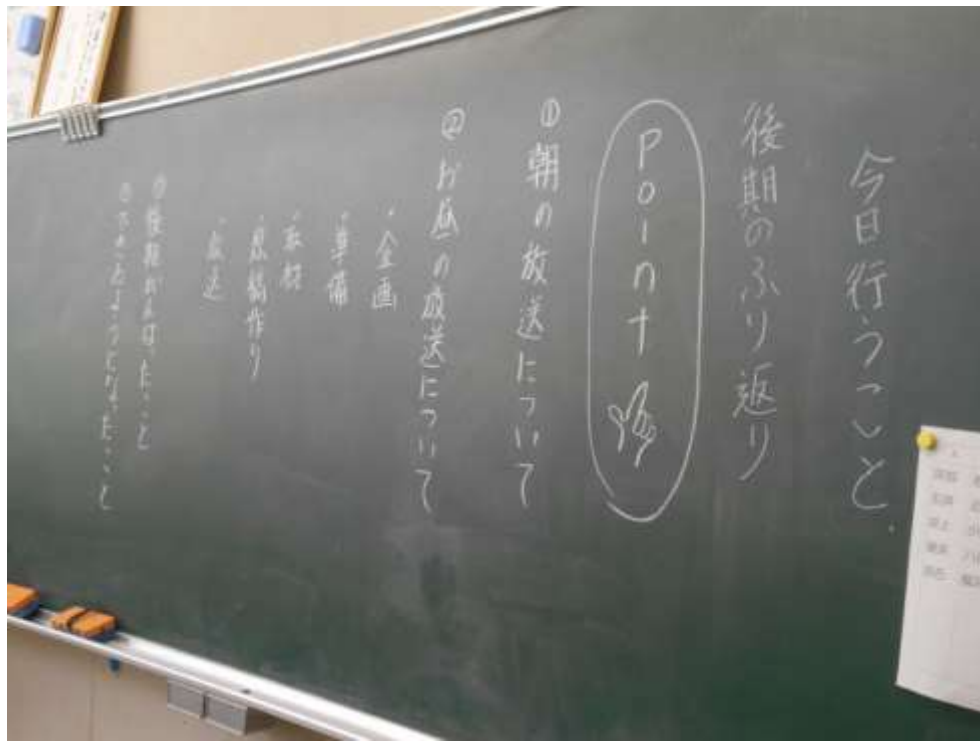 今日行うこと.
後期のふり返り
Point
①朝の放送について
②お昼の放送について
・企画
・準備
・取材
・原稿作り
・放送
○後期がんばったこと
○できるようになったこと